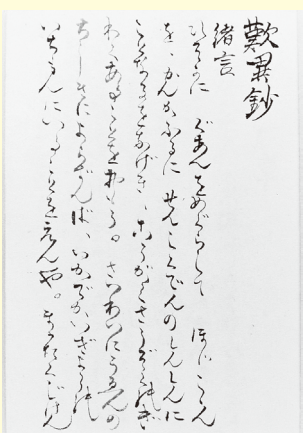 歎異鈔
緒言
ひそかに ぐあんをめぐらして ほゞここん
を、かんかふるに せんしくでんのしんしんに
ことなるをなげき、こうがくさうぞくのぎ
わくあることをおもふ。さいわいにうえんの
ちしきによらずんば、いかでかいぎようの
いちもんにいることをえんや。まつたくじけん